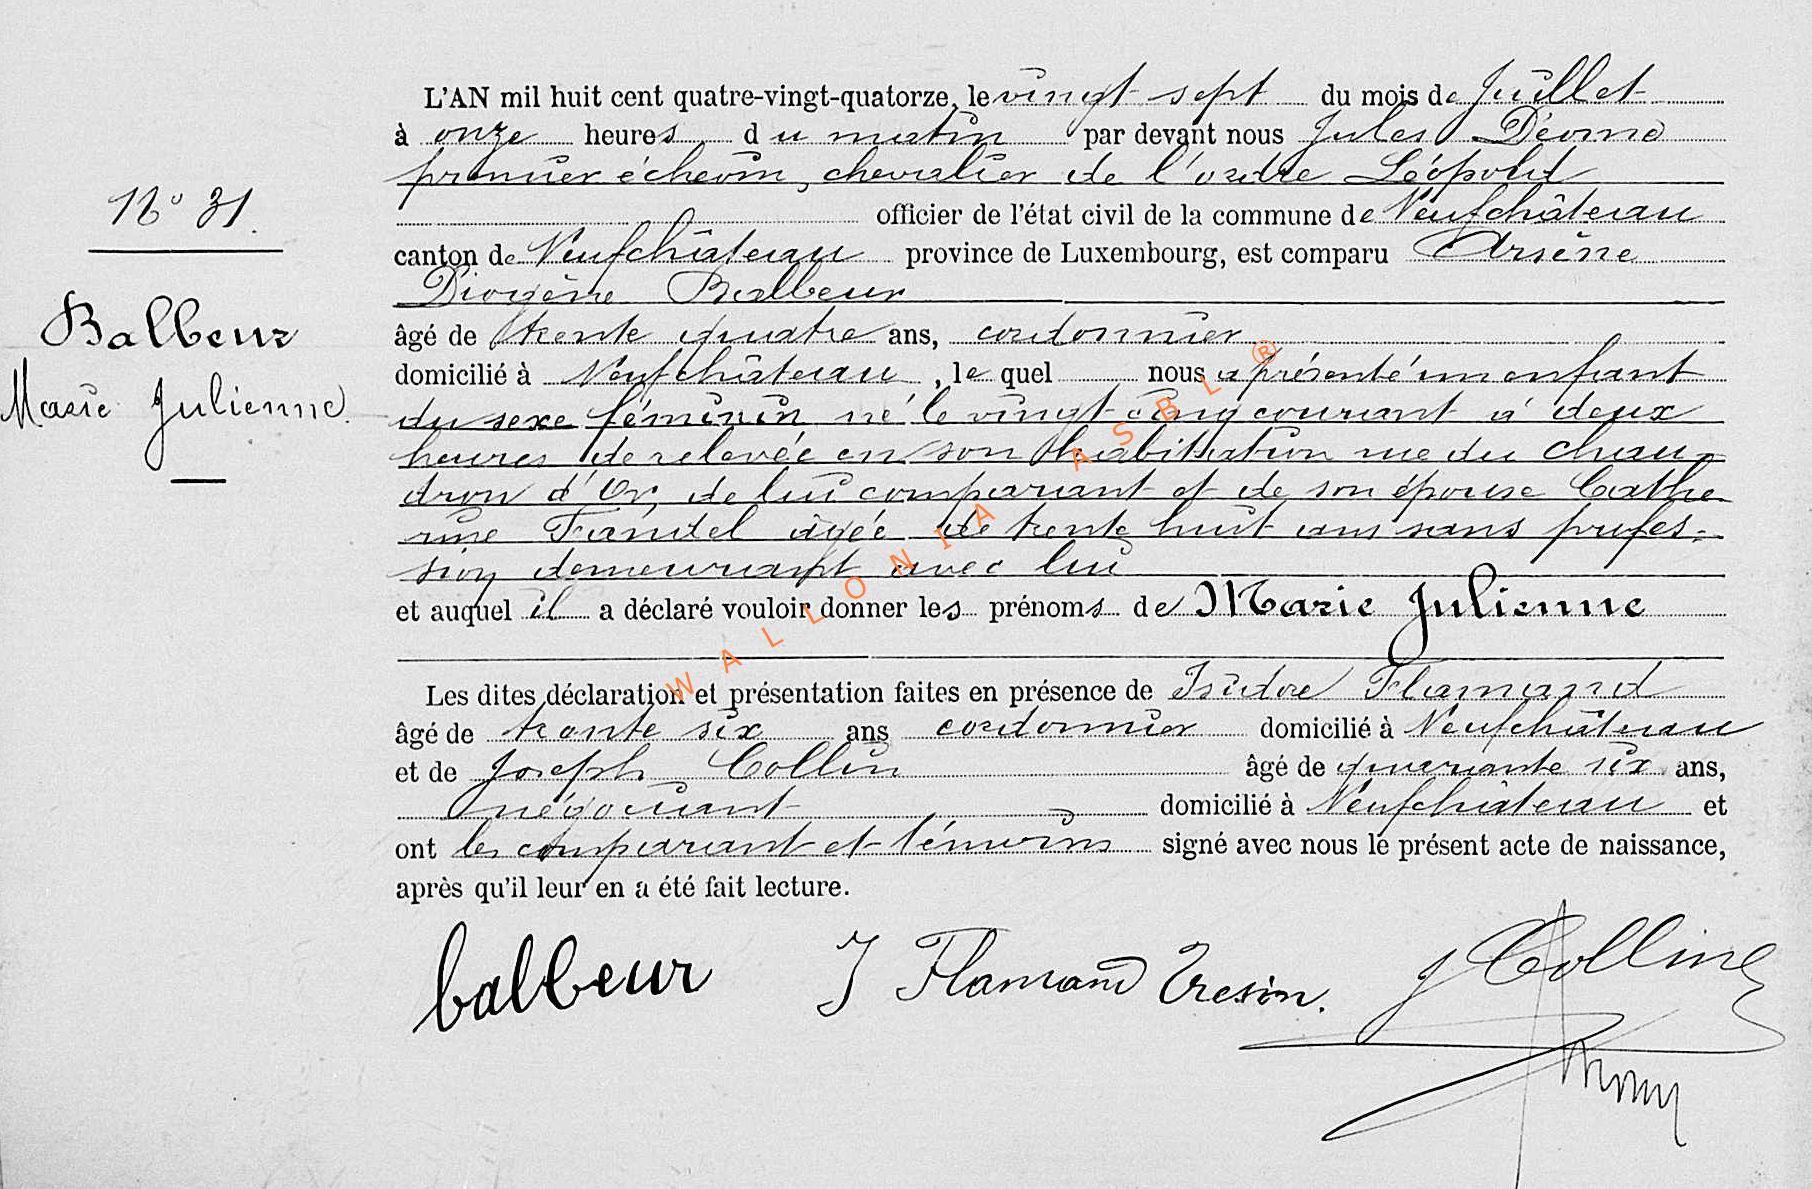 L'AN mil huit cent quatre-vingt-quatorze, le vingt sept du mois de Juillet
à onze heures du matin par devant nous Jules
premier échevin, chevalier de l'ordre Léopold
officier de l'état civil de la commune de Neufchâteau
canton de Neufchâteau province de Luxembourg, est comparu Arsène
Diogène Balbeur
âgé de trente quatre ans, cordonnier
domicilié à Neufchâteau, le quel nous a présenté un enfant
du sexe féminin né le vingt cinq courant à deux
heures de relevée en son habitation rue du chau-
dron d'Or, de lui comparant et de son épouse Cathe-
rine Fandel âgée de trente huit ans sans profes-
sion demeurant avec lui
et auquel il a déclaré vouloir donner les prénoms de Marie Julienne
Les dites déclaration et présentation faites en présence de Isidore Flamand
âgé de trente six ans cordonnier domicilié à Neufchâteau
et de Joseph Collin âgé de quarante six ans,
négociant domicilié à Neufchâteau et
ont les comparant et témoins signé avec nous le présent acte de naissance,
après qu'il leur en a été fait lecture.
No 31.
Balbeur
Marie Julienne
balbeur J Flamand J Colline
WALLONIA ASBL ®